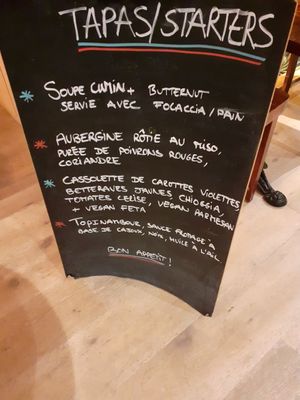 TAPAS/STARTERS
SOUPE CUMIN + BUTTERNUT
SERVIE AVEC FOCACCIA/PAIN
AUBERGINE RÔTIE AU MISO,
PURÉE DE POIVRONS ROUGES,
CORIANDRE
CASSOLETTE DE CAROTTES VIOLETTES
BETTERAVES JAUNES, CHIOGGIA,
TOMATES CERISE, VEGAN PARMESAN
+ VEGAN FETA
TOPINAMBOUR, SAUCE FROMAGE À
BASE DE CAJOUX, NOIX, HUILE À L'AIL
BON APPÉTIT!